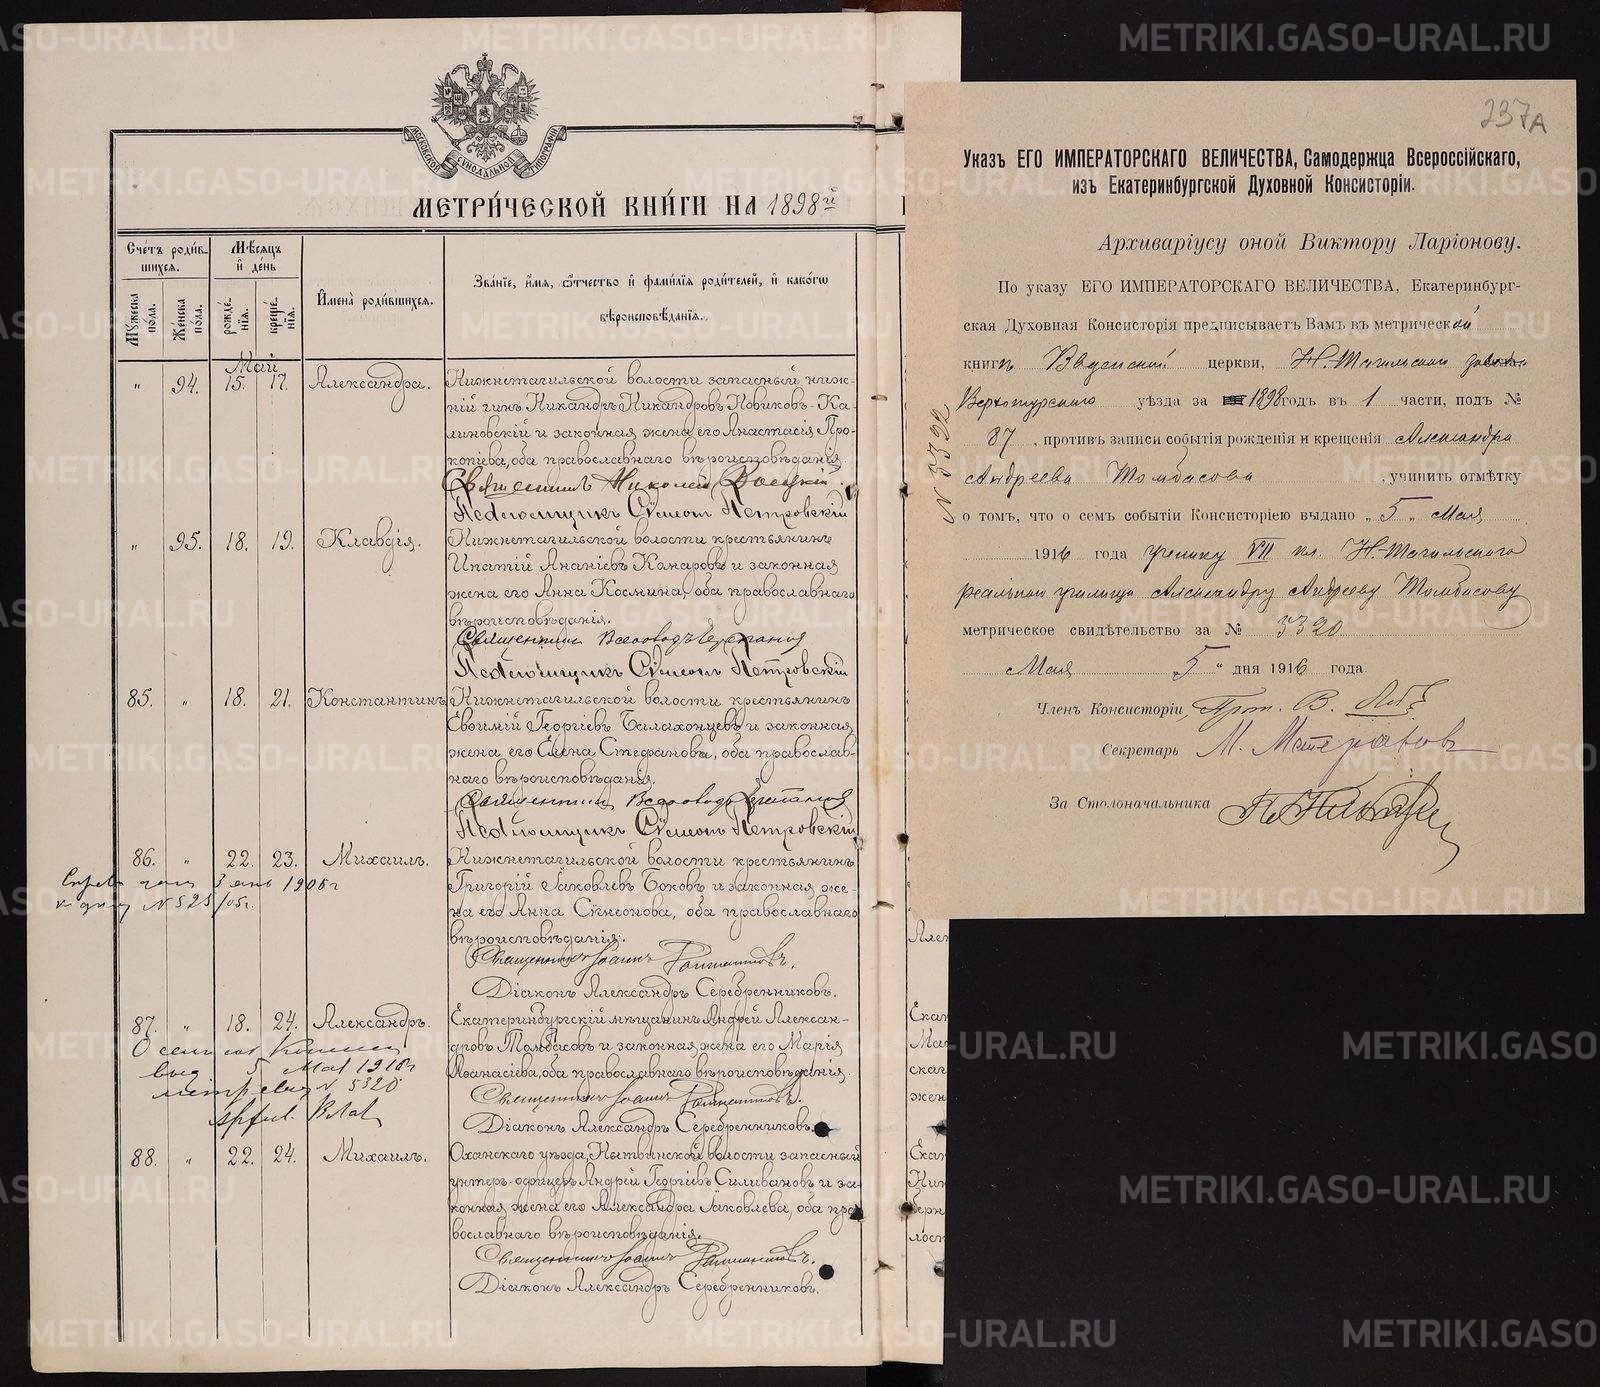 МОСКОВСКОЙ СѴНОДАЛЬНОЙ ТИПОГРАФІИ
МЕТРИ́ЧЕСКОЙ КНИ́ГИ НА 1898й
Сче́тъ роди́в-
шихся.
Мѣ́сяцъ
и҆ де́нь
И҆мена̀ роди́вшихся.
Зва́нїе, и҆́мя, ѻ҆́тчество и҆ фами́лїя роди́телей, и҆ како́гѡ
вѣроисповѣ́данїя.
Му́жеска по́ла.
Же́нска по́ла.
рожде́нїя.
креще́нїя.
Май
" 94. 15. 17. Александра.
Нижнетагильской волости запасный ниж-
ній чинъ Никандръ Никандровъ Новиковъ-Ка-
линовскій и законная жена его Анастасія Про-
копіева, оба православнаго вѣроисповѣданія.
Священникъ Николай
Псаломщикъ Сѵмеонъ Петровскій
" 95. 18. 19. Клавдія.
Нижнетагильской волости крестьянинъ
Ипатій Ананіевъ Комаровъ и законная
жена его Анна Космина, оба православнаго
вѣроисповѣданія.
Священникъ Всеволодъ
Псаломщикъ Сѵмеонъ Петровскій
85. " 18. 21. Константинъ
Нижнетагильской волости крестьянинъ
Евѳимій Георгіевъ Балахонцевъ и законная
жена его Елена Стефанова, оба православ-
наго вѣроисповѣданія.
Священникъ Всеволодъ
Псаломщикъ Сѵмеонъ Петровскій
86. " 22. 23. Михаилъ.
3 1905 г
N 525/05 г.
Нижнетагильской волости крестьянинъ
Григорій Іаковлевъ Боковъ и законная же-
на его Анна Сѵмеонова, оба православнаго
вѣроисповѣданія.
Священникъ Іоаннъ
Діаконъ Александръ Серебренниковъ.
87. " 18. 24. Александръ.
О семъ изъ Консис
выд 5 Мая 1916 г
метр свид N 5320
Екатеринбургскій мѣщанинъ Андрей Алексан-
дровъ Томбасовъ и законная жена его Марія
Аѳанасіева, оба православнаго вѣроисповѣданія.
Священникъ Іоаннъ
Діаконъ Александръ Серебренниковъ.
88. " 22. 24. Михаилъ.
Оханскаго уѣзда, Нытвинской волости запасный
унтеръ-офицеръ Андрей Георгіевъ Силивановъ и за-
конная жена его Александра Іаковлева, оба пра-
вославнаго вѣроисповѣданія.
Священникъ Іоаннъ
Діаконъ Александръ Серебренниковъ.
237А
Указъ ЕГО ИМПЕРАТОРСКАГО ВЕЛИЧЕСТВА, Самодержца Всероссійскаго,
изъ Екатеринбургской Духовной Консисторіи.
Архиваріусу оной Виктору Ларіонову.
По указу ЕГО ИМПЕРАТОРСКАГО ВЕЛИЧЕСТВА, Екатеринбург-
ская Духовная Консисторія предписываетъ Вамъ въ метрической
книгѣ Введенской церкви, Н.-Тагильскаго завода
Верхотурскаго уѣзда за 1898 годъ въ 1 части, подъ №
87, противъ записи событія рожденія и крещенія Александра
Андреева Томбасова, учинить отмѣтку
о томъ, что о семъ событіи Консисторіею выдано „5„ Мая
1916 года ученику VII кл. Н.-Тагильскаго
реальнаго училища Александру Андрееву Томбасову
метрическое свидѣтельство за № 5320
Мая 5 „ дня 1916 года.
N 5322
Членъ Консисторіи, Прот. В.
Секретарь М.
За Столоначальника
METRIKI.GASO-URAL.RU